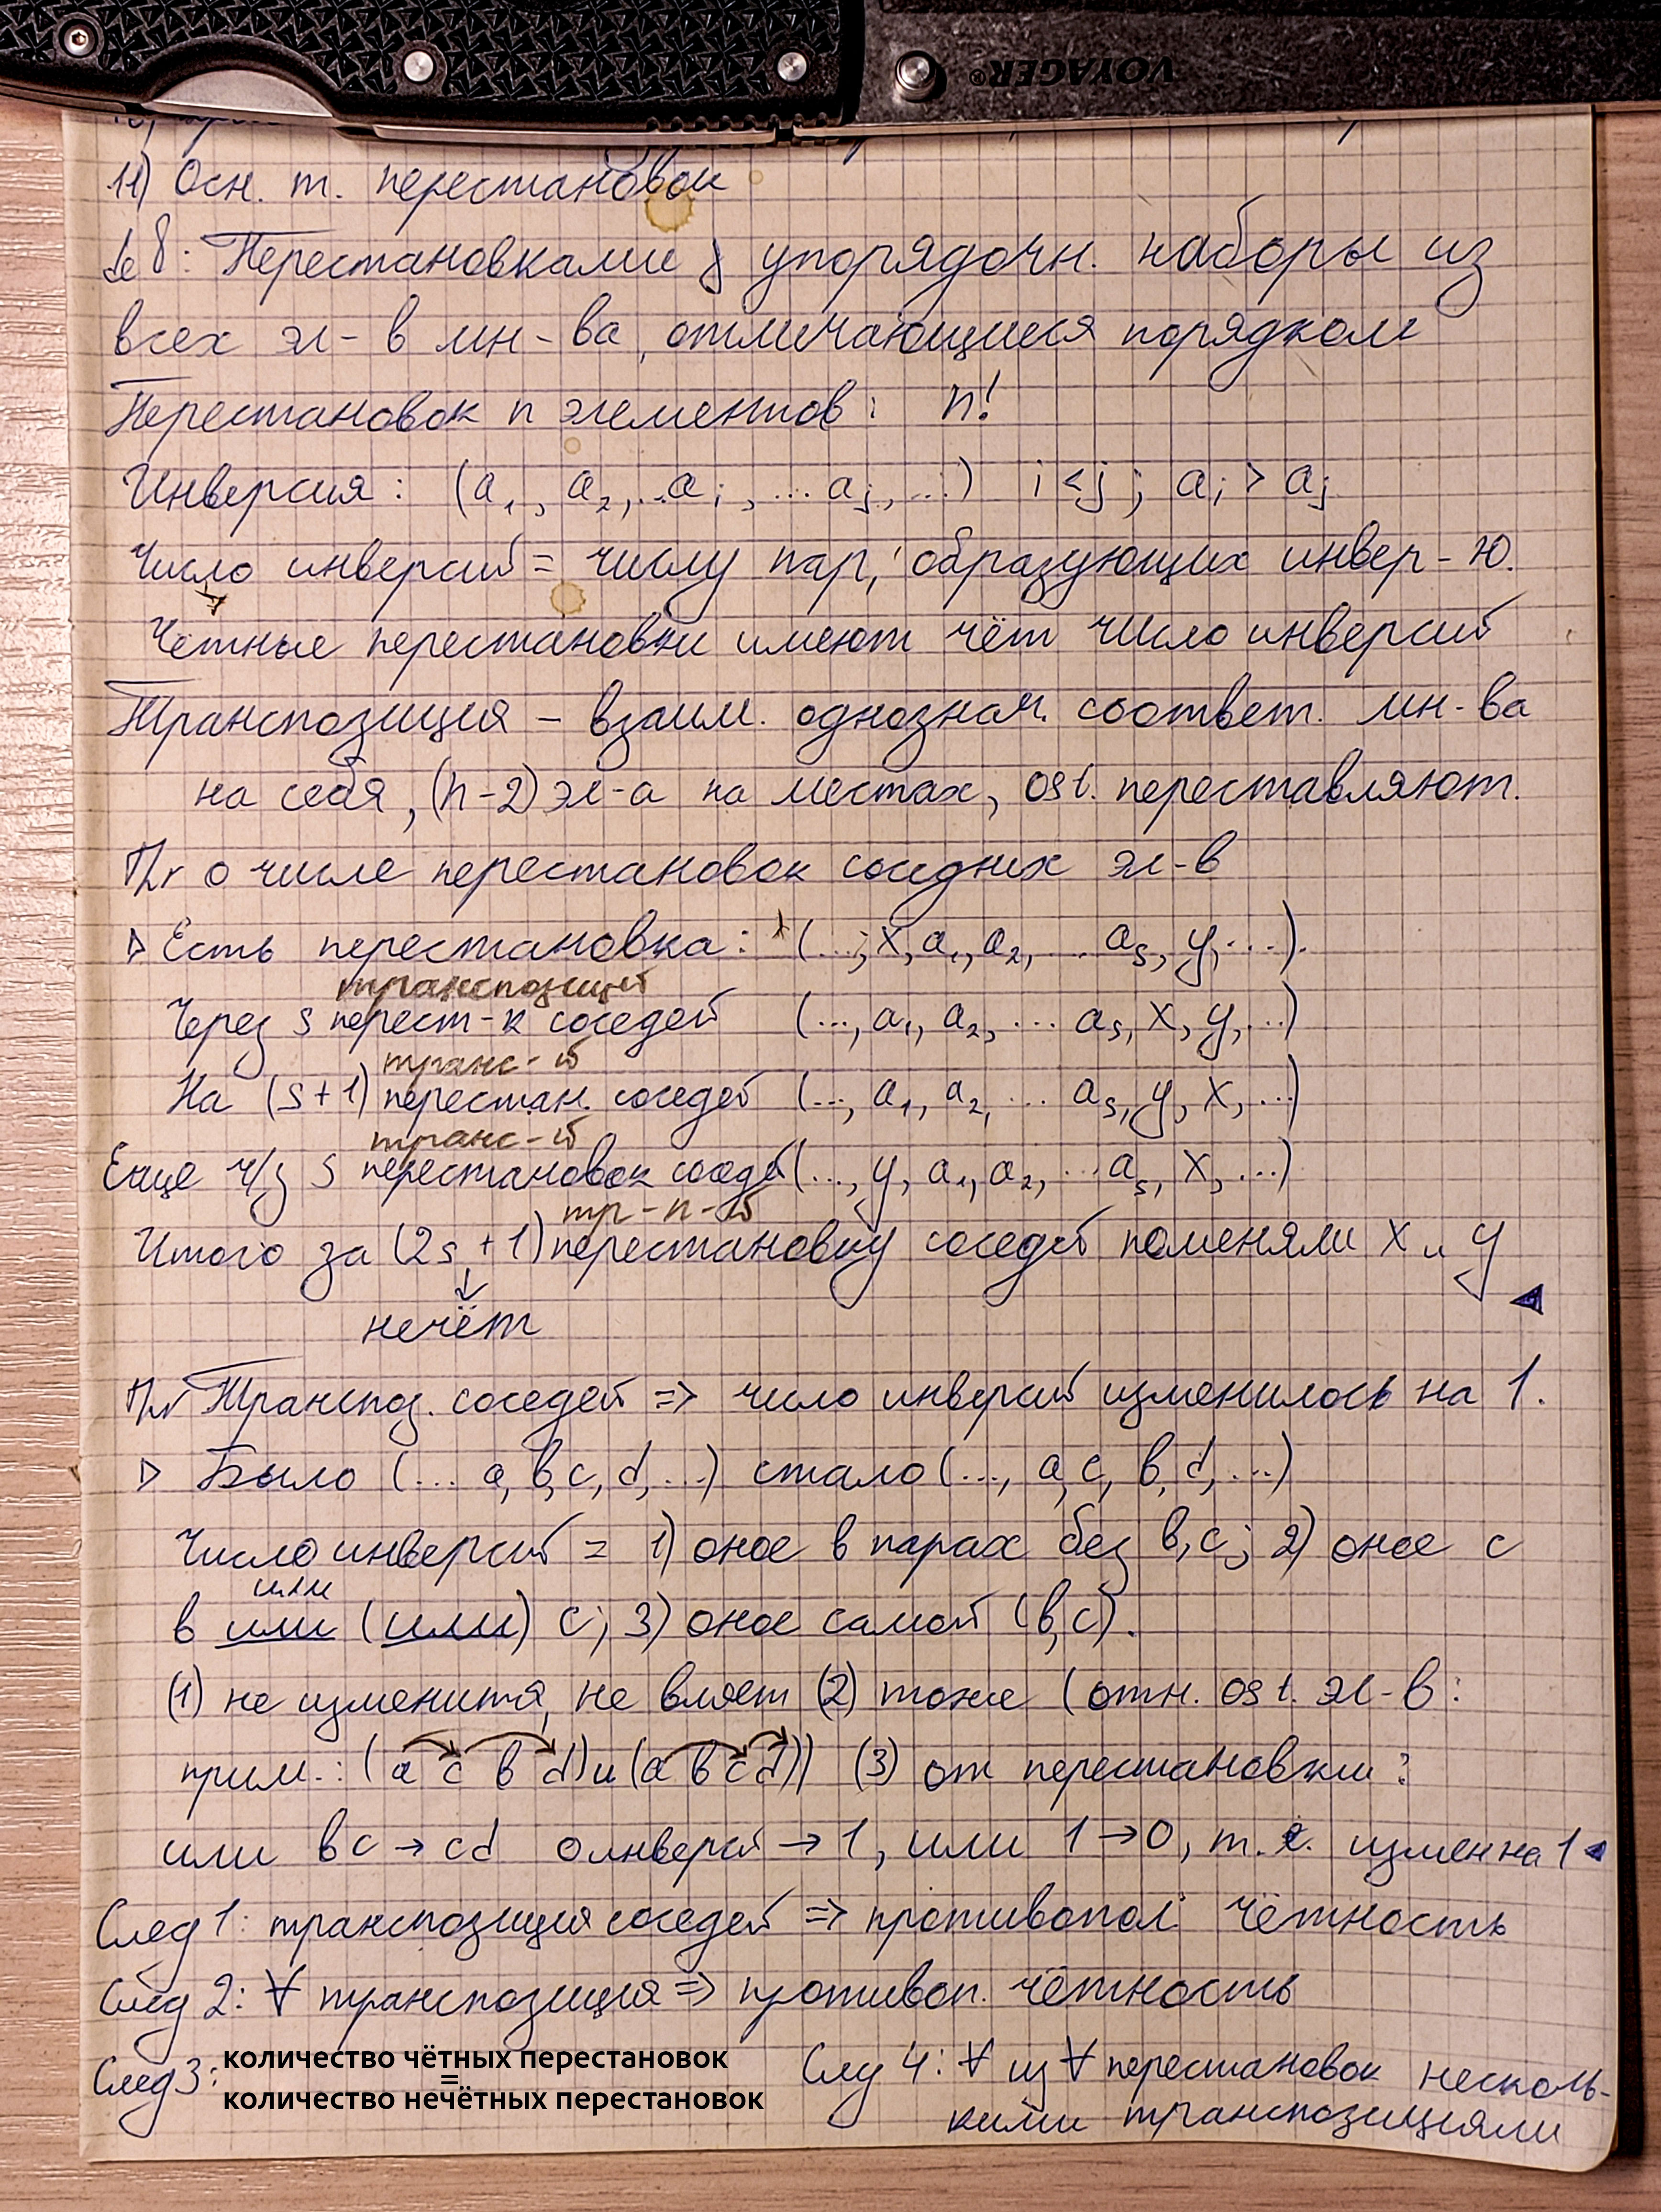 VOYAGER®
11) Осн. т. перестановок
def: Перестановками z упорядочн. наборы из
всех эл-в мн-ва, отличающиеся порядком
Перестановок n элементов: n!
Инверсия: (a₁, a₂,...aᵢ, ... aⱼ, ...) i<j; aᵢ > aⱼ
Число инверсий = числу пар, образующих инвер-ю.
Чётные перестановки имеют чёт число инверсий
Транспозиция – взаим. однознач. соответ. мн-ва
на себя, (n-2) эл-а на местах, ost. переставляют.
Пr о числе перестановок соседних эл-в
▷ Есть перестановка: (..., x, a₁, a₂, ... aₛ, y, ...).
транспозиций
Через s перест-к соседей (..., a₁, a₂, ... aₛ, x, y, ...)
транс-й
На (s+1) перестан. соседей (..., a₁, a₂, ... aₛ, y, x, ...)
транс-й
Еще ч/з s перестановок соседей (..., y, a₁, a₂, ... aₛ, x, ...)
тр-п-й
Итого за (2s+1) перестановку соседей поменяли x и y
↓
нечёт ◀
Пr Транспоз. соседей => число инверсий изменилось на 1.
▷ Было (... a, b, c, d, ...) стало (..., a, c, b, d, ...)
Число инверсий = 1) оное в парах без b, c; 2) оное с
или
b или (или) c; 3) оное самой (b, c).
(1) не изменится, не влияет (2) тоже (отн. ost. эл-в:
прим.: (a c b d) и (a b c d)) (3) от перестановки:
или bc → cd 0 инверсий → 1, или 1 → 0, т.е. измен на 1 ◀
След 1: транспозиция соседей => противопол. чётность
След 2: ∀ транспозиция => противоп. чётность
След 3: количество чётных перестановок
=
количество нечётных перестановок
След 4: ∀ из ∀ перестановок несколь-
кими транспозициями